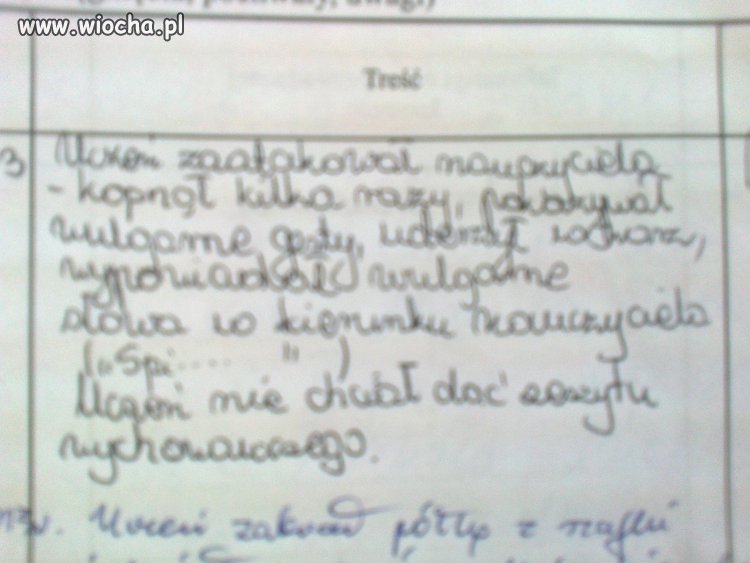 www.wiocha.pl
pochwały, uwagi)
Treść
3 Uczeń zaatakował nauczyciela
- kopnął kilka razy, pokazywał
wulgarne gesty, uderzył w twarz,
wypowiadał wulgarne
słowa w kierunku nauczyciela
("Spi.... ")
Uczeń nie chciał dać zeszytu
wychowawczego.
Uczeń z